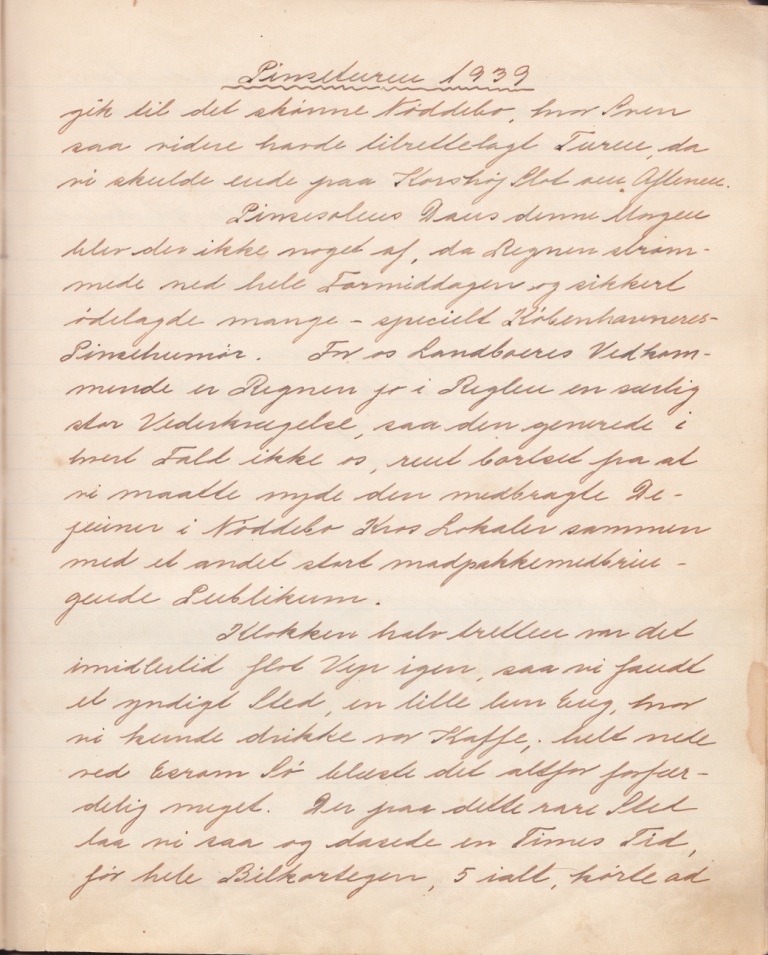 Pinseturen 1939
gik til det skønne Nøddebo, hvor Sven
saa videre havde tilrettelagt Turen, da
vi skulde ende paa Korshøj Slot om Aftenen.
Pinsesolens Dans denne Morgen
blev der ikke noget af, da Regnen strøm-
mede ned hele Formiddagen og sikkert
ødelagde mange - specielt Københavneres-
Pinsehumør. For os Landboeres Vedkom-
mende er Regnen jo i Reglen en særlig
stor Vederkvægelse, saa den generede i
hvert Fald ikke os, rent bortset fra at
vi maatte nyde den medbragte De-
jeuner i Nøddebo Kros Lokaler sammen
med et andet stort madpakkemedbrin-
gende Publikum.
Klokken halv tretten var det
imidlertid flot Vejr igen, saa vi fandt
et yndigt Sted, en lille lun Eng, hvor
vi kunde drikke vor Kaffe; helt nede
ved Esrom Sø blæste det altfor forfær-
delig meget. Der paa dette rare Sted
laa vi saa og dasede en Times Tid,
før hele Bilkortegen, 5 ialt, kørte ad